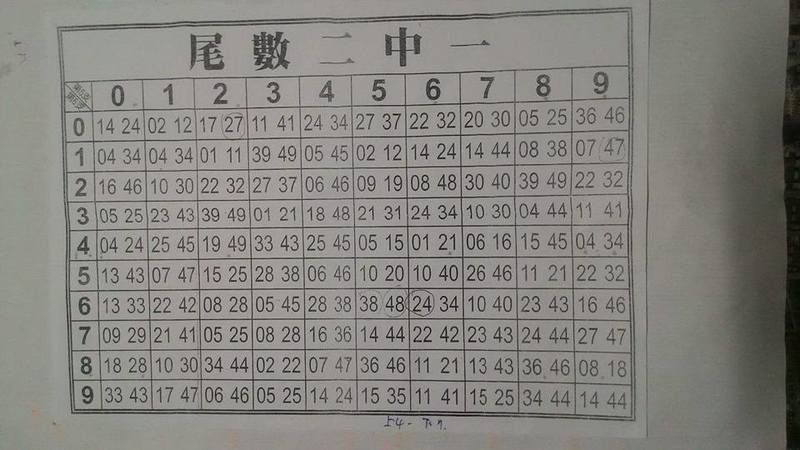 尾數二中一
0 1 2 3 4 5 6 7 8 9
0 14 24 02 12 17 27 11 41 24 34 27 37 22 32 20 30 05 25 36 46
1 04 34 04 34 01 11 39 49 05 45 02 12 14 24 14 44 08 38 07 47
2 16 46 10 30 22 32 27 37 06 46 09 19 08 48 30 40 39 49 22 32
3 05 25 23 43 39 49 01 21 18 48 21 31 24 34 10 30 04 44 11 41
4 04 24 25 45 19 49 33 43 25 45 05 15 01 21 06 16 15 45 04 34
5 13 43 07 47 15 25 28 38 06 46 10 20 10 40 26 46 11 21 22 32
6 13 33 22 42 08 28 05 45 28 38 38 48 24 34 10 40 23 43 16 46
7 09 29 21 41 05 25 08 28 16 36 14 44 22 42 23 43 24 44 27 47
8 18 28 10 30 34 44 02 22 07 47 36 46 11 21 13 43 36 46 08 18
9 33 43 17 47 06 46 05 25 14 24 15 35 11 41 15 25 34 44 14 44